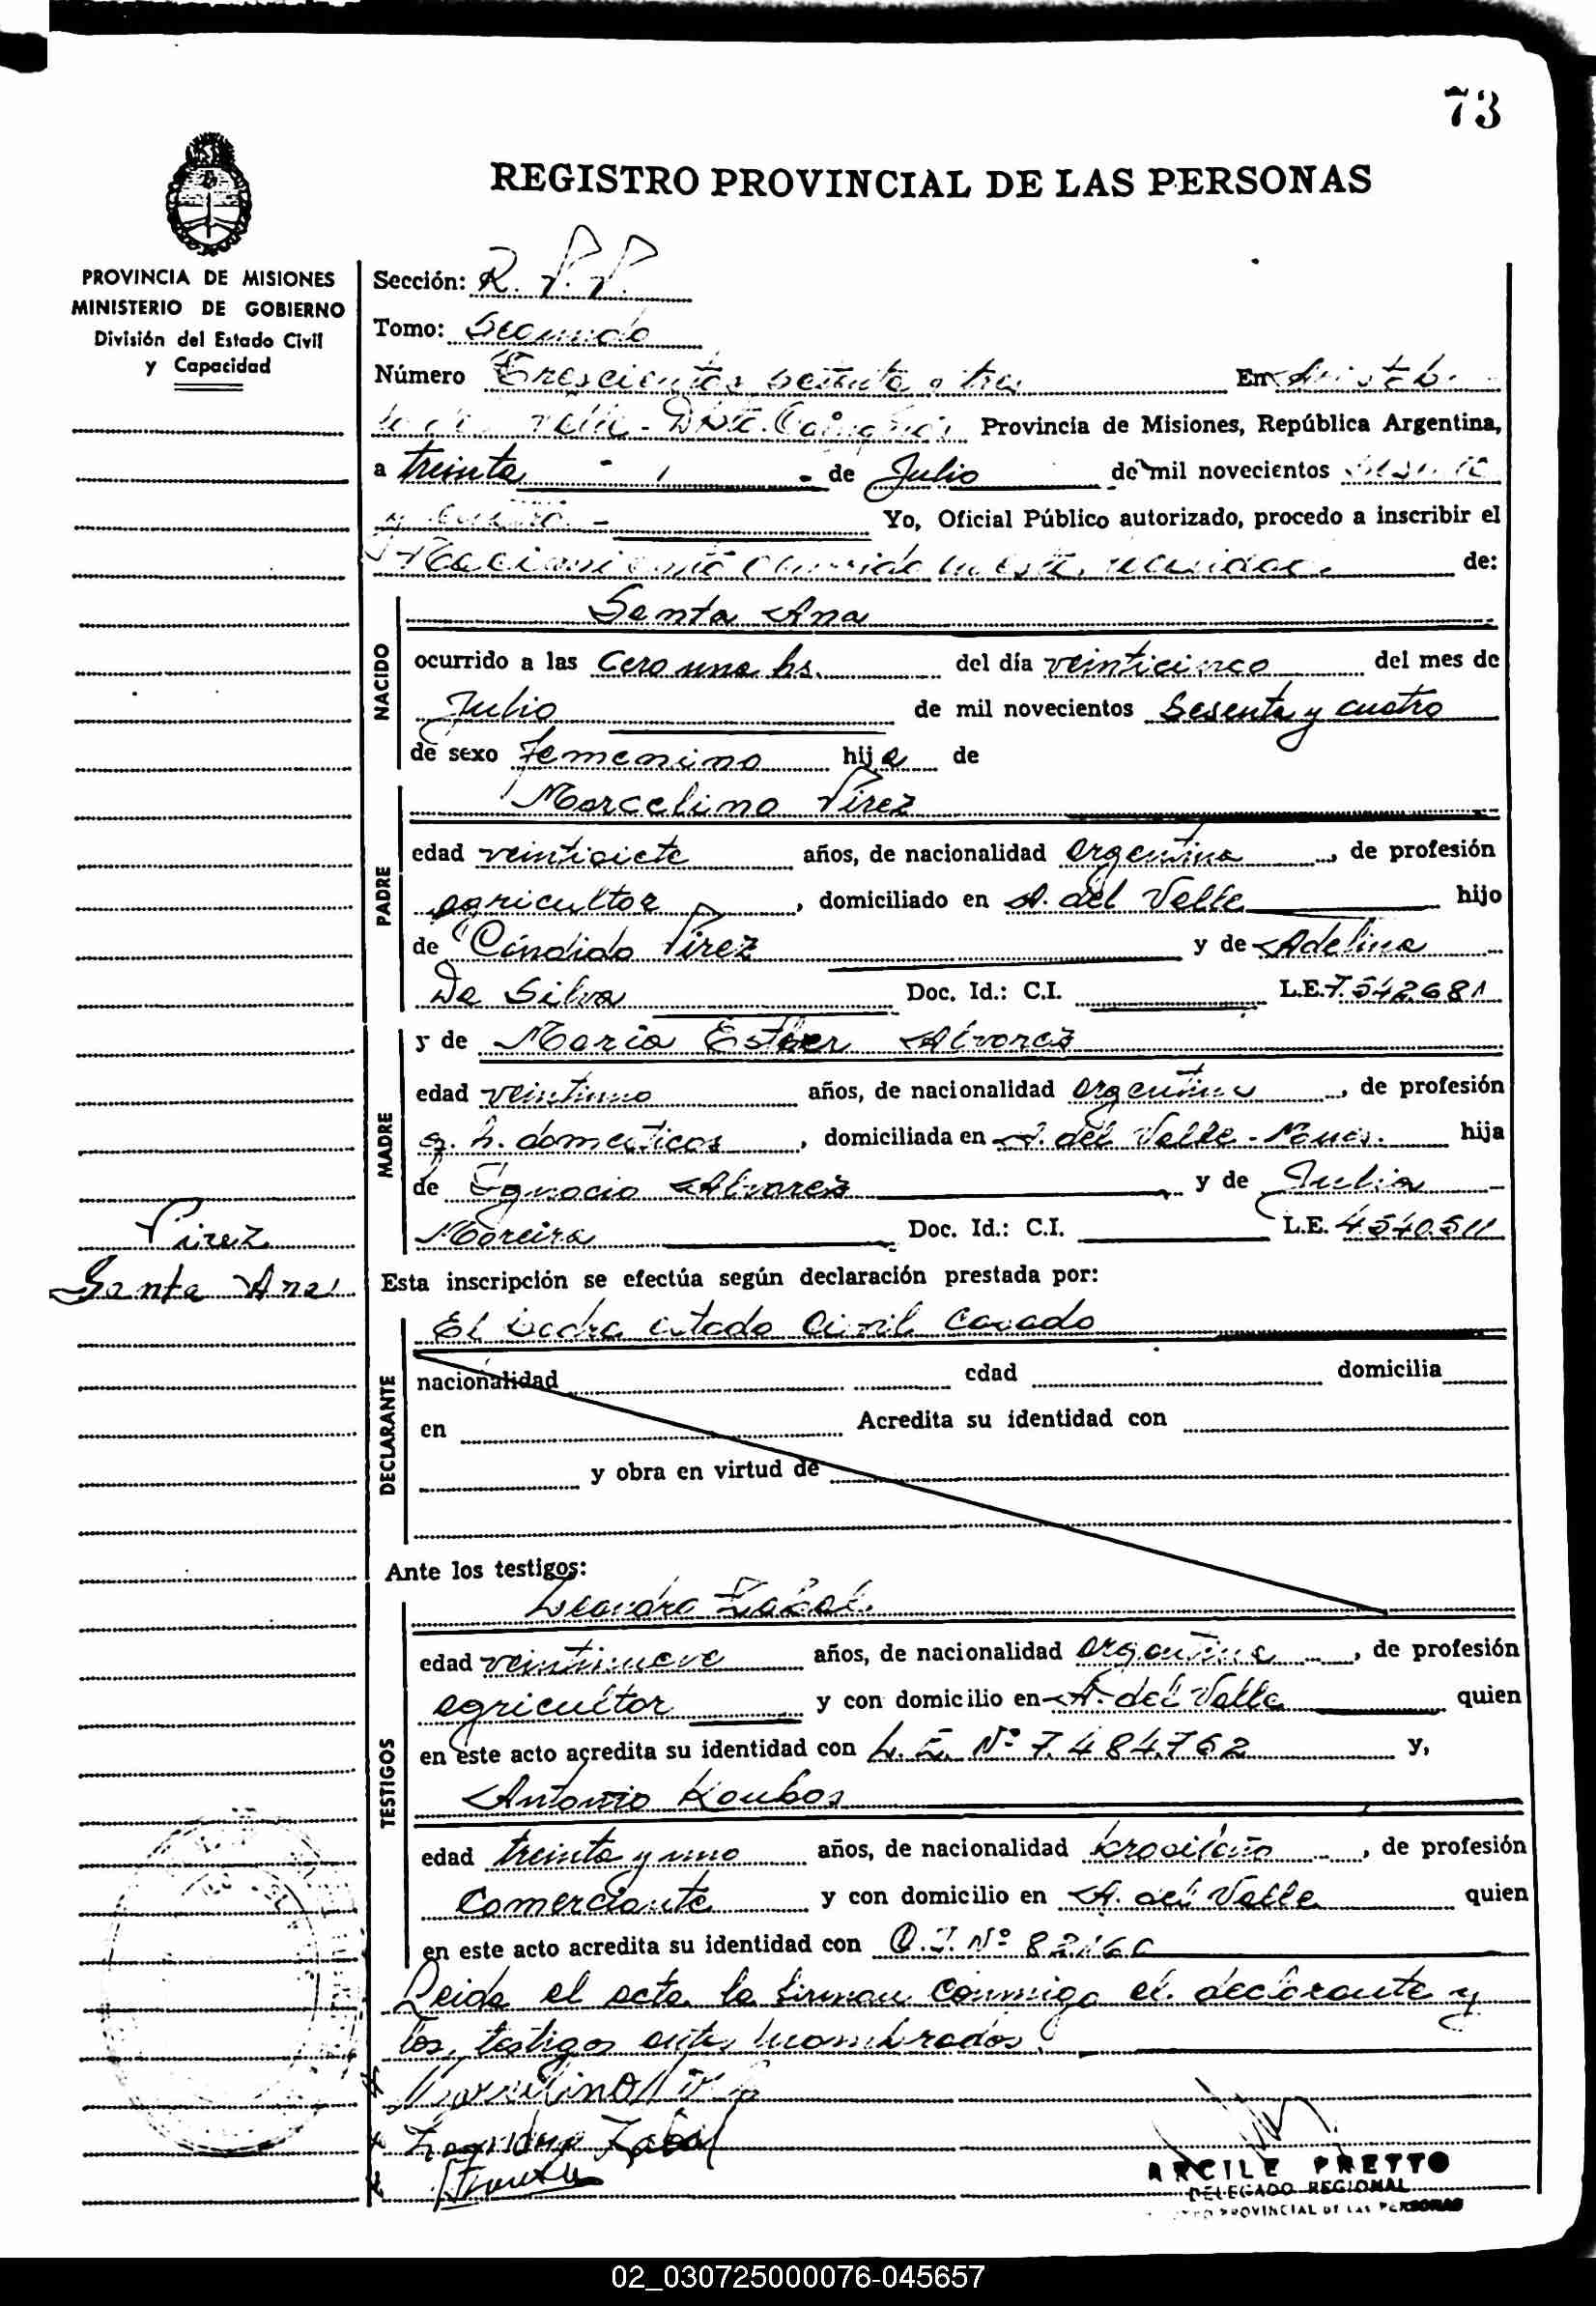 73
REGISTRO PROVINCIAL DE LAS PERSONAS
PROVINCIA DE MISIONES
MINISTERIO DE GOBIERNO
División del Estado Civil
y Capacidad
Sección: R. P. P.
Tomo: Segundo
Número Trescientos setenta y tres En Aristób
lo del Valle - Dpto. Cainguás Provincia de Misiones, República Argentina,
a treinta - de Julio de mil novecientos sesenta
y cuatro - Yo, Oficial Público autorizado, procedo a inscribir el
Nacimiento ocurrido en esta vecindad de:
Santa Ana
NACIDO
ocurrido a las cero una hs. del día veinticinco del mes de
Julio de mil novecientos Sesenta y cuatro
de sexo femenino hija de
Marcelino Pirez
PADRE
edad veintisiete años, de nacionalidad argentina, de profesión
agricultor, domiciliado en A. del Valle hijo
de Cándido Pirez y de Adelina
Da Silva Doc. Id.: C.I. L.E. 7.542681
y de María Esther Alvarez
MADRE
edad veintiuno años, de nacionalidad argentina, de profesión
q. h. domesticos, domiciliada en A. del Valle - hija
de Ignacio Alvarez y de Julia
Moreira Doc. Id.: C.I. L.E. 4.540.511
Pirez
Santa Ana
Esta inscripción se efectúa según declaración prestada por:
El padre estado civil casado
DECLARANTE
nacionalidad edad domicilia
en Acredita su identidad con
y obra en virtud de
Ante los testigos:
Leandro Zabal
TESTIGOS
edad veintinueve años, de nacionalidad argentina, de profesión
agricultor y con domicilio en A. del Valle quien
en este acto acredita su identidad con L. E. Nº 7.484.762 y,
Antonio Koubos
edad treinta y uno años, de nacionalidad brasileño, de profesión
Comerciante y con domicilio en A. del Valle quien
en este acto acredita su identidad con Nº
Leida el acta la firman conmigo el declarante y
los testigos antes nombrados
Marcelino
Leandro Zabal
ARCILE PRETTO
DELEGADO REGIONAL
PROVINCIAL DE LAS PERSONAS
02_030725000076-045657